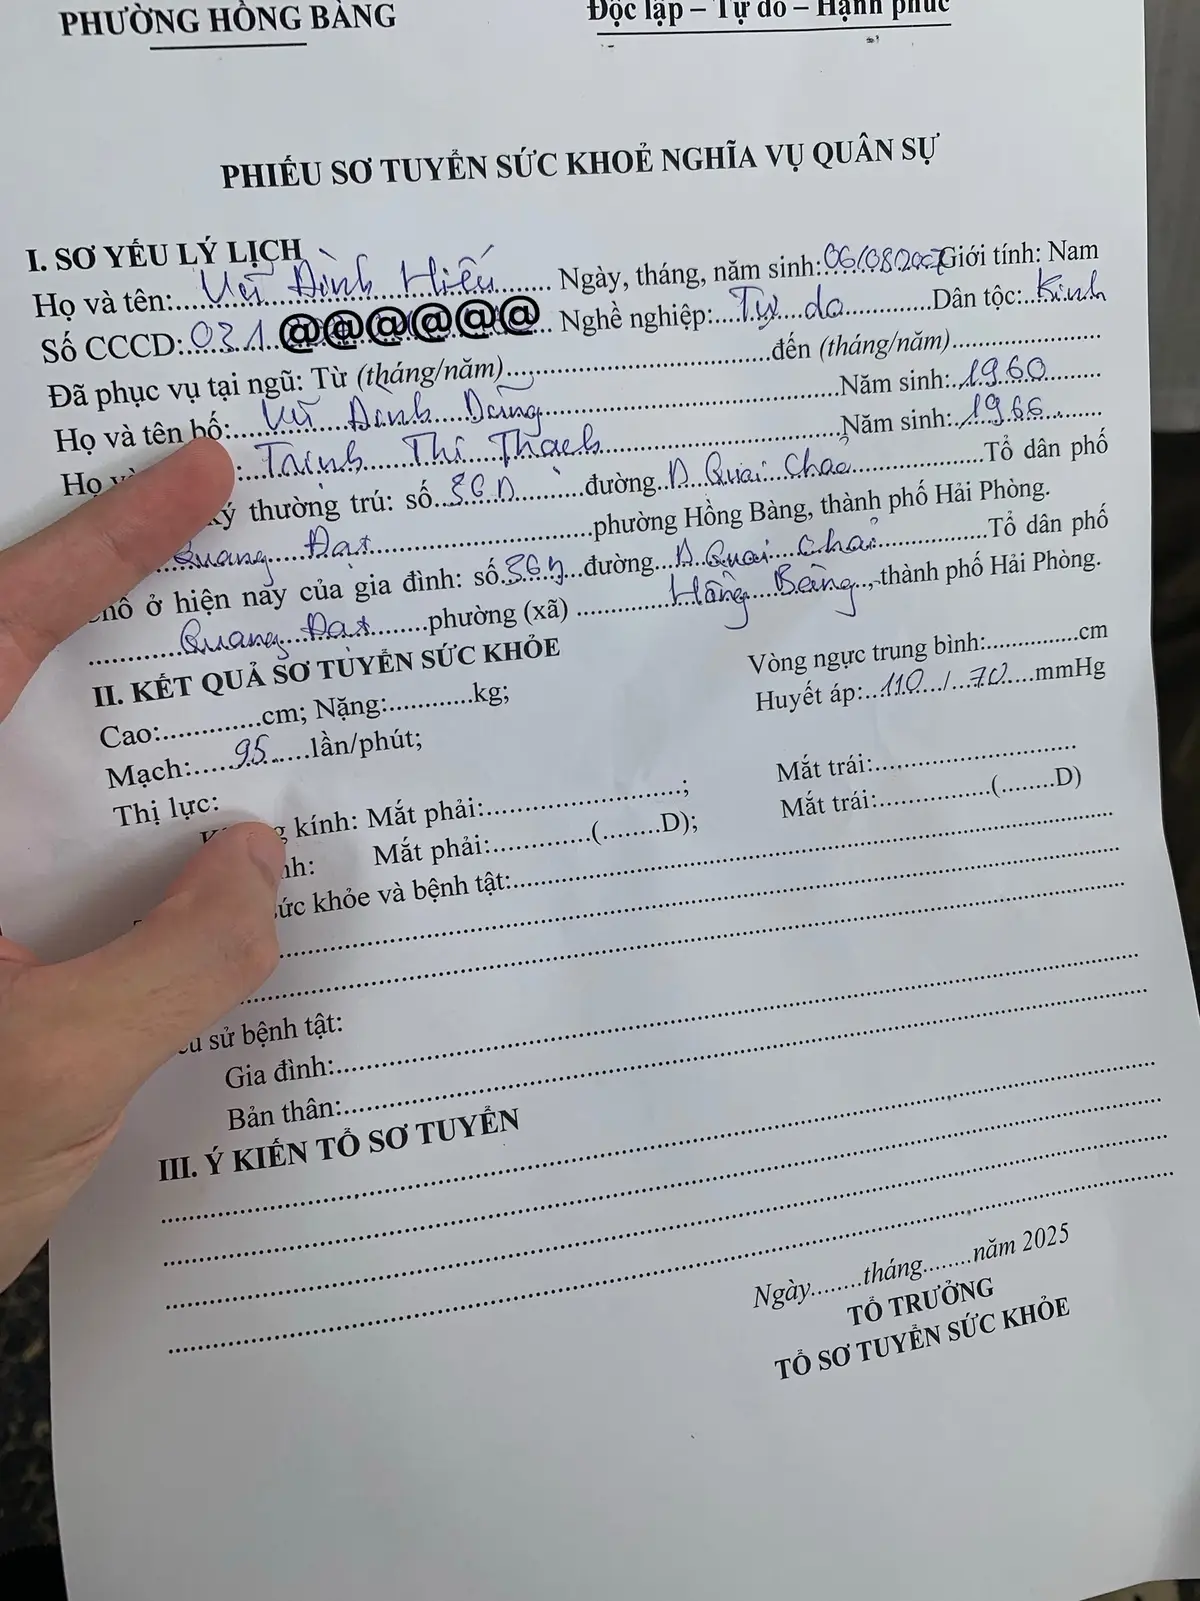 PHƯỜNG HỒNG BÀNG
Độc lập – Tự do – Hạnh phúc
PHIẾU SƠ TUYỂN SỨC KHOẺ NGHĨA VỤ QUÂN SỰ
I. SƠ YẾU LÝ LỊCH
Họ và tên: Vũ Đình Hiếu Ngày, tháng, năm sinh: 06/08/2007 Giới tính: Nam
Số CCCD: 031 @@@@@@ Nghề nghiệp: Tự do Dân tộc: Kinh
Đã phục vụ tại ngũ: Từ (tháng/năm) đến (tháng/năm)
Họ và tên bố: Vũ Đình Dũng Năm sinh: 1960
Họ Trịnh Thị Thạch Năm sinh: 1966
thường trú: số đường Quai Chảo Tổ dân phố
Quang Đạt phường Hồng Bàng, thành phố Hải Phòng.
ở hiện nay của gia đình: số đường Quai Tổ dân phố
Quang Đạt phường (xã) Hồng Bàng, thành phố Hải Phòng.
II. KẾT QUẢ SƠ TUYỂN SỨC KHỎE
Cao: cm; Nặng: kg; Vòng ngực trung bình: cm
Mạch: 95 lần/phút; Huyết áp: 110 / 70 mmHg
Thị lực:
kính: Mắt phải: ; Mắt trái:
Mắt phải: ( D); Mắt trái: ( D)
khỏe và bệnh tật:
sử bệnh tật:
Gia đình:
Bản thân:
III. Ý KIẾN TỔ SƠ TUYỂN
Ngày tháng năm 2025
TỔ TRƯỞNG
TỔ SƠ TUYỂN SỨC KHỎE